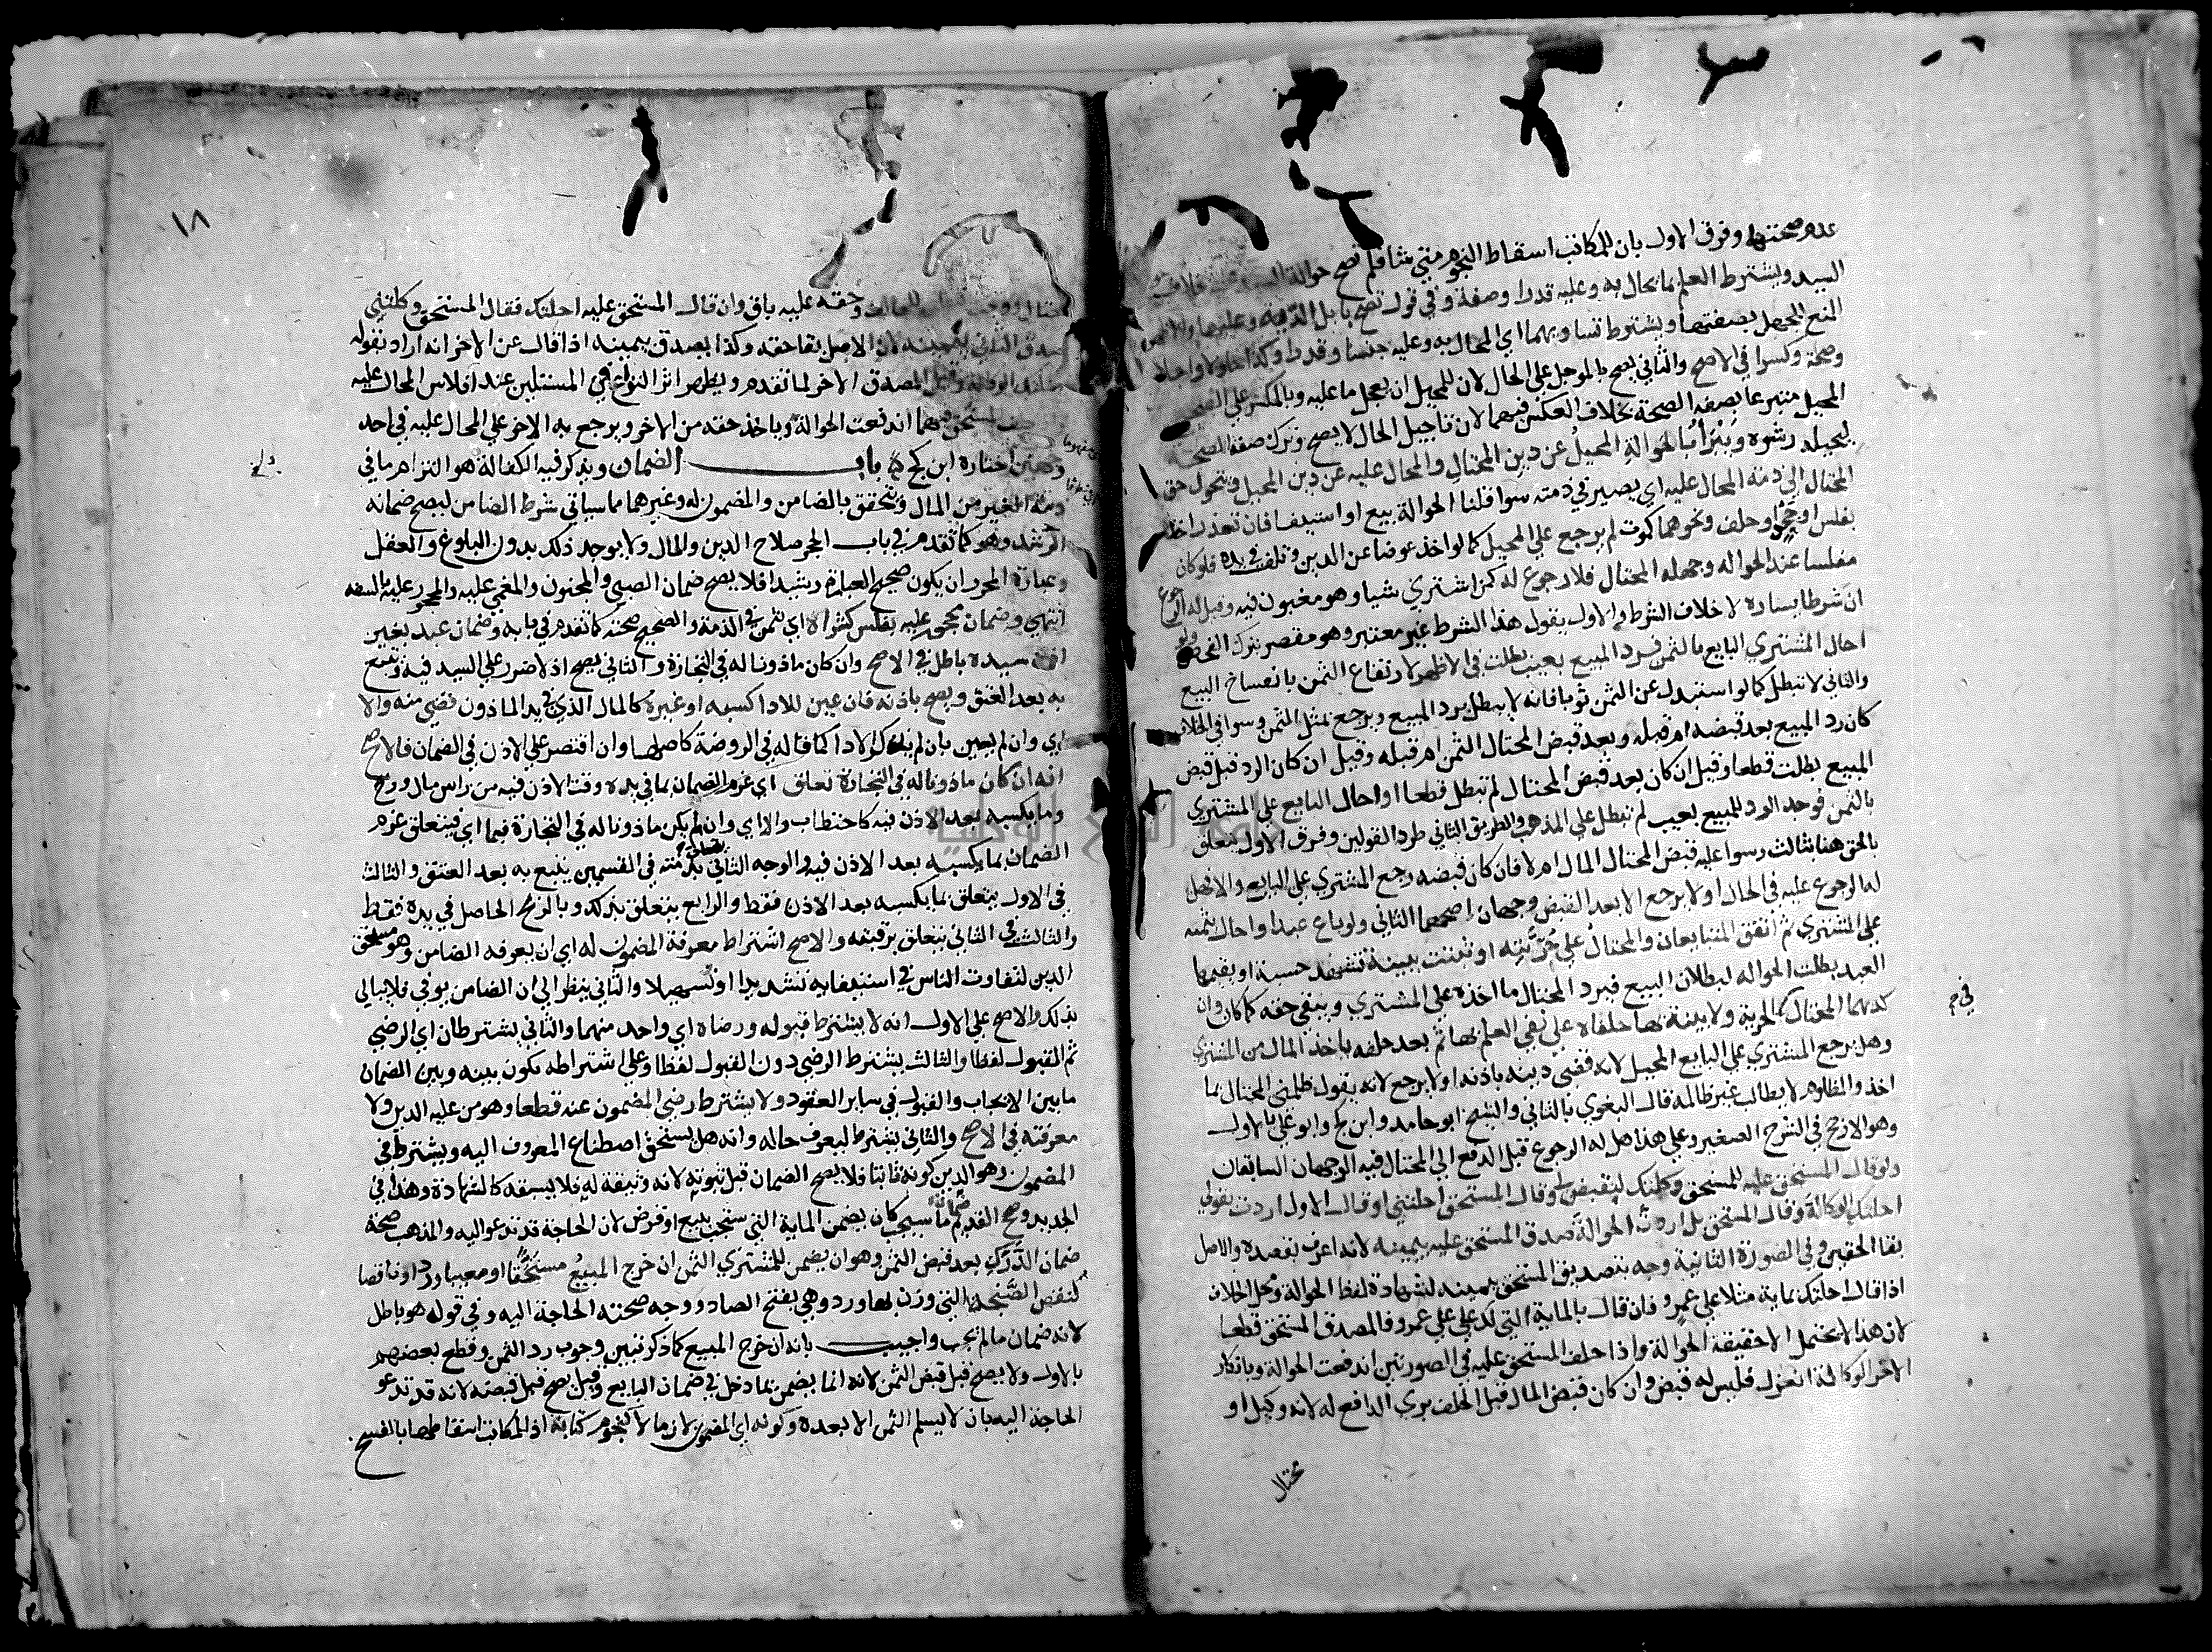 عدم صحتها وفرق الاول بان للمكاتب اسقاط النجوم متي شا فلم تصح حوالة السيد
السيد ويشترط العلم بما يحال به وعليه قدرا وصفة وفي قول تصح بابل الدية وعليها والاصح
المنع للجهل بصفتها ويشترط تساويهما اي المحال به وعليه جنسا وقدرا وكذا حلولا واجلا
وصحة وكسرا في الاصح والثاني يصح بالموجل علي الحال لان للمحيل ان يعجل ما عليه وبالمكسر علي الصحيح
المحيل متبرعا بصفة الصحة بخلاف العكس فيهما لان تاجيل الحال لا يصح وترك صفة الصحة
ليحيله رشوه ويبرأ بالحوالة المحيل عن دين المحتال والمحال عليه عن دين المحيل ويتحول حق
المحتال الي ذمة المحال عليه اي يصير في ذمته سوا قلنا الحوالة بيع او استيفا فان تعذر اخذه
بفلس او جحد او حلف ونحوهما كموت لم يرجع علي المحيل كما لو اخذ عوضا عن الدين وتلف في يده فلو كان
مفلسا عند الحواله وجهله المحتال فلا رجوع له كمن اشتري شيا وهو مغبون فيه وقيل له الرجوع
ان شرط يساره لا خلاف الشرط والاول يقول هذا الشرط غير معتبر وهو مقصر بترك الفحص ولو
احال المشتري البايع بالثمن فرد المبيع بعيب بطلت في الاظهر لارتفاع الثمن بانفساخ البيع
والثاني لا تبطل كما لو استبدل عن الثمن ثوبا فانه لا يبطل برد المبيع ويرجع بمثل الثمن وسوا في الخلاف
كان رد المبيع بعد قبضه ام قبله وبعد قبض المحتال الثمن ام قبله وقيل ان كان الرد قبل قبض
المبيع بطلت قطعا وقيل ان كان بعد قبض المحتال لم تبطل قطعا او احال البايع علي المشتري
بالثمن فوجد الرد للمبيع بعيب لم تبطل علي المذهب والطريق الثاني طرد القولين وفرق الاول بتعلق
بالحق هنا بثالث وسوا عليه قبض المحتال المال ام لا فان كان قبضه رجع المشتري علي البايع والا فهل
له الرجوع عليه في الحال او لا يرجع الا بعد القبض وجهان اصحهما الثاني ولو باع عبدا واحال بثمنه
علي المشتري ثم اتفق المتبايعان والمحتال علي حريته او ثبتت ببينة تشهد حسبة او يقيمها
العبد بطلت الحواله لبطلان البيع فيرد المحتال ما اخذه علي المشتري ويبقي حقه كما كان وان
كذبهما المحتال في الحرية ولا بينة بها حلفاه علي نفي العلم بها ثم بعد حلفه ياخذ المال من المشتري
وهل يرجع المشتري علي البايع المحيل لانه قضي دينه باذنه او لا يرجع لانه يقول ظلمني المحتال بما
اخذ والمظلوم لا يطالب غير ظالمه قال البغوي بالثاني والشيخ ابو حامد وابن كج وابو علي بالاول
وهو الارجح في الشرح الصغير وعلي هذا هل له الرجوع قبل الدفع الي المحتال فيه الوجهان السابقان
ولو قال المستحق عليه للمستحق وكلتك لتقبض لي وقال المستحق احلتني او قال الاول اردت بقولي
احلتك الوكالة وقال المستحق بل اردت الحوالة صدق المستحق عليه بيمينه لانه اعرف بقصده والاصل
بقا الحقين وفي الصورة الثانية وجه بتصديق المستحق بيمينه لشهادة لفظ الحوالة ومحل الخلاف
اذا قال احلتك بماية مثلا علي عمرو فان قال بالماية التي لك علي علي عمرو فالمصدق المستحق قطعا
لان هذا لا يحتمل الا حقيقة الحوالة واذا حلف المستحق عليه في الصورتين اندفعت الحوالة وبانكار
الاخر الوكالة انعزل فليس له قبض وان كان قبض المال قبل الحلف بري الدافع له لانه وكيل او
محتال
في م
١٨
وحقه عليه باق وان قال المستحق عليه احلتك فقال المستحق وكلتني
صدق الثاني بيمينه لان الاصل بقا حقه وكذا يصدق بيمينه اذا قال عن الاخر انه اراد بقوله
وقيل المصدق الاخر لما تقدم ويظهر اثر النزاع في المسئلتين عند افلاس المحال عليه
المستحق فيهما اندفعت الحوالة وياخذ حقه من الاخر ويرجع به الاخر علي المحال عليه في احد
وجهين اختاره ابن كج باب الضمان ويذكر فيه الكفالة هو التزام ما في
ذمة الغير من المال ويتحقق بالضامن والمضمون له وغيرهما مما سياتي شرط الضامن ليصح ضمانه
الرشد وهو كما تقدم في باب الحجر صلاح الدين والمال ولا يوجد ذلك بدون البلوغ والعقل
وعبارة المحرر ان يكون صحيح العبارة رشيدا فلا يصح ضمان الصبي والمجنون والمغمي عليه والمحجور عليه بالسفه
انتهي وضمان محجور عليه بفلس كشرائه اي بثمن في الذمة والصحيح صحته كما تقدم في بابه وضمان عبد بغير
اذن سيده باطل في الاصح وان كان ماذونا له في التجارة والثاني يصح اذ لا ضرر علي السيد فيه ويتبع
به بعد العتق ويصح باذنه فان عين للادا كسبه او غيره كالمال الذي في يد الماذون قضي منه والا
اي وان لم يعين بان لم يذكر الادا كما قاله في الروضة كاصلها وان اقتصر علي الاذن في الضمان فالاصح
انه ان كان ماذونا له في التجارة تعلق اي غرم الضمان بما في يده وقت الاذن فيه من راس مال وربح
وما يكسبه بعد الاذن فيه كاحتطاب والا اي وان لم يكن ماذونا له في التجارة فبما اي فيتعلق غرم
الضمان بما يكسبه بعد الاذن فيه والوجه الثاني يتعلق بذمته في القسمين يتبع به بعد العتق والثالث
في الاول يتعلق بما يكسبه بعد الاذن فقط والرابع يتعلق بذلك وبالربح الحاصل في يده فقط
والثالث في الثاني يتعلق برقبته والاصح اشتراط معرفة المضمون له اي ان يعرفه الضامن وهو مستحق
الدين لتفاوت الناس في استيفايه تشديدا وتسهيلا والثاني ينظر الي ان الضامن يوفي فلا يبالي
بذلك والاصح علي الاول انه لا يشترط قبوله ورضاه اي واحد منهما والثاني يشترطان اي الرضي
ثم القبول لفظا والثالث يشترط الرضي دون القبول لفظا وعلي اشتراطه يكون بينه وبين الضمان
ما بين الايجاب والقبول في ساير العقود ولا يشترط رضي المضمون عنه قطعا وهو من عليه الدين ولا
معرفته في الاصح والثاني يشترط ليعرف حاله وانه هل يستحق اصطناع المعروف اليه ويشترط في
المضمون وهو الدين كونه ثابتا فلا يصح الضمان قبل ثبوته لانه وثيقة له فلا يسبقه كالشهادة وهذا في
الجديد وصح القديم ضمان ما سيجب كان يضمن الماية التي ستجب ببيع او قرض لان الحاجة قد تدعو اليه والمذهب صحة
ضمان الدرك بعد قبض الثمن وهو ان يضمن للمشتري الثمن ان خرج المبيع مستحقا او معيبا ورد او ناقصا
لنقص الصنجة التي وزن بها ورد وهي بفتح الصاد ووجه صحته الحاجة اليه وفي قول هو باطل
لانه ضمان ما لم يجب واجيب بانه ان خرج المبيع كما ذكر تبين وجوب رد الثمن وقطع بعضهم
بالاول ولا يصح قبل قبض الثمن لانه انما يضمن بما دخل في ضمان البايع وقيل يصح قبل قبضه لانه قد تدعو
الحاجة اليه بان لا يسلم الثمن الا بعده وكونه اي المضمون لازما لا كنجوم كتابة اذ للمكاتب اسقاطها بالفسخ